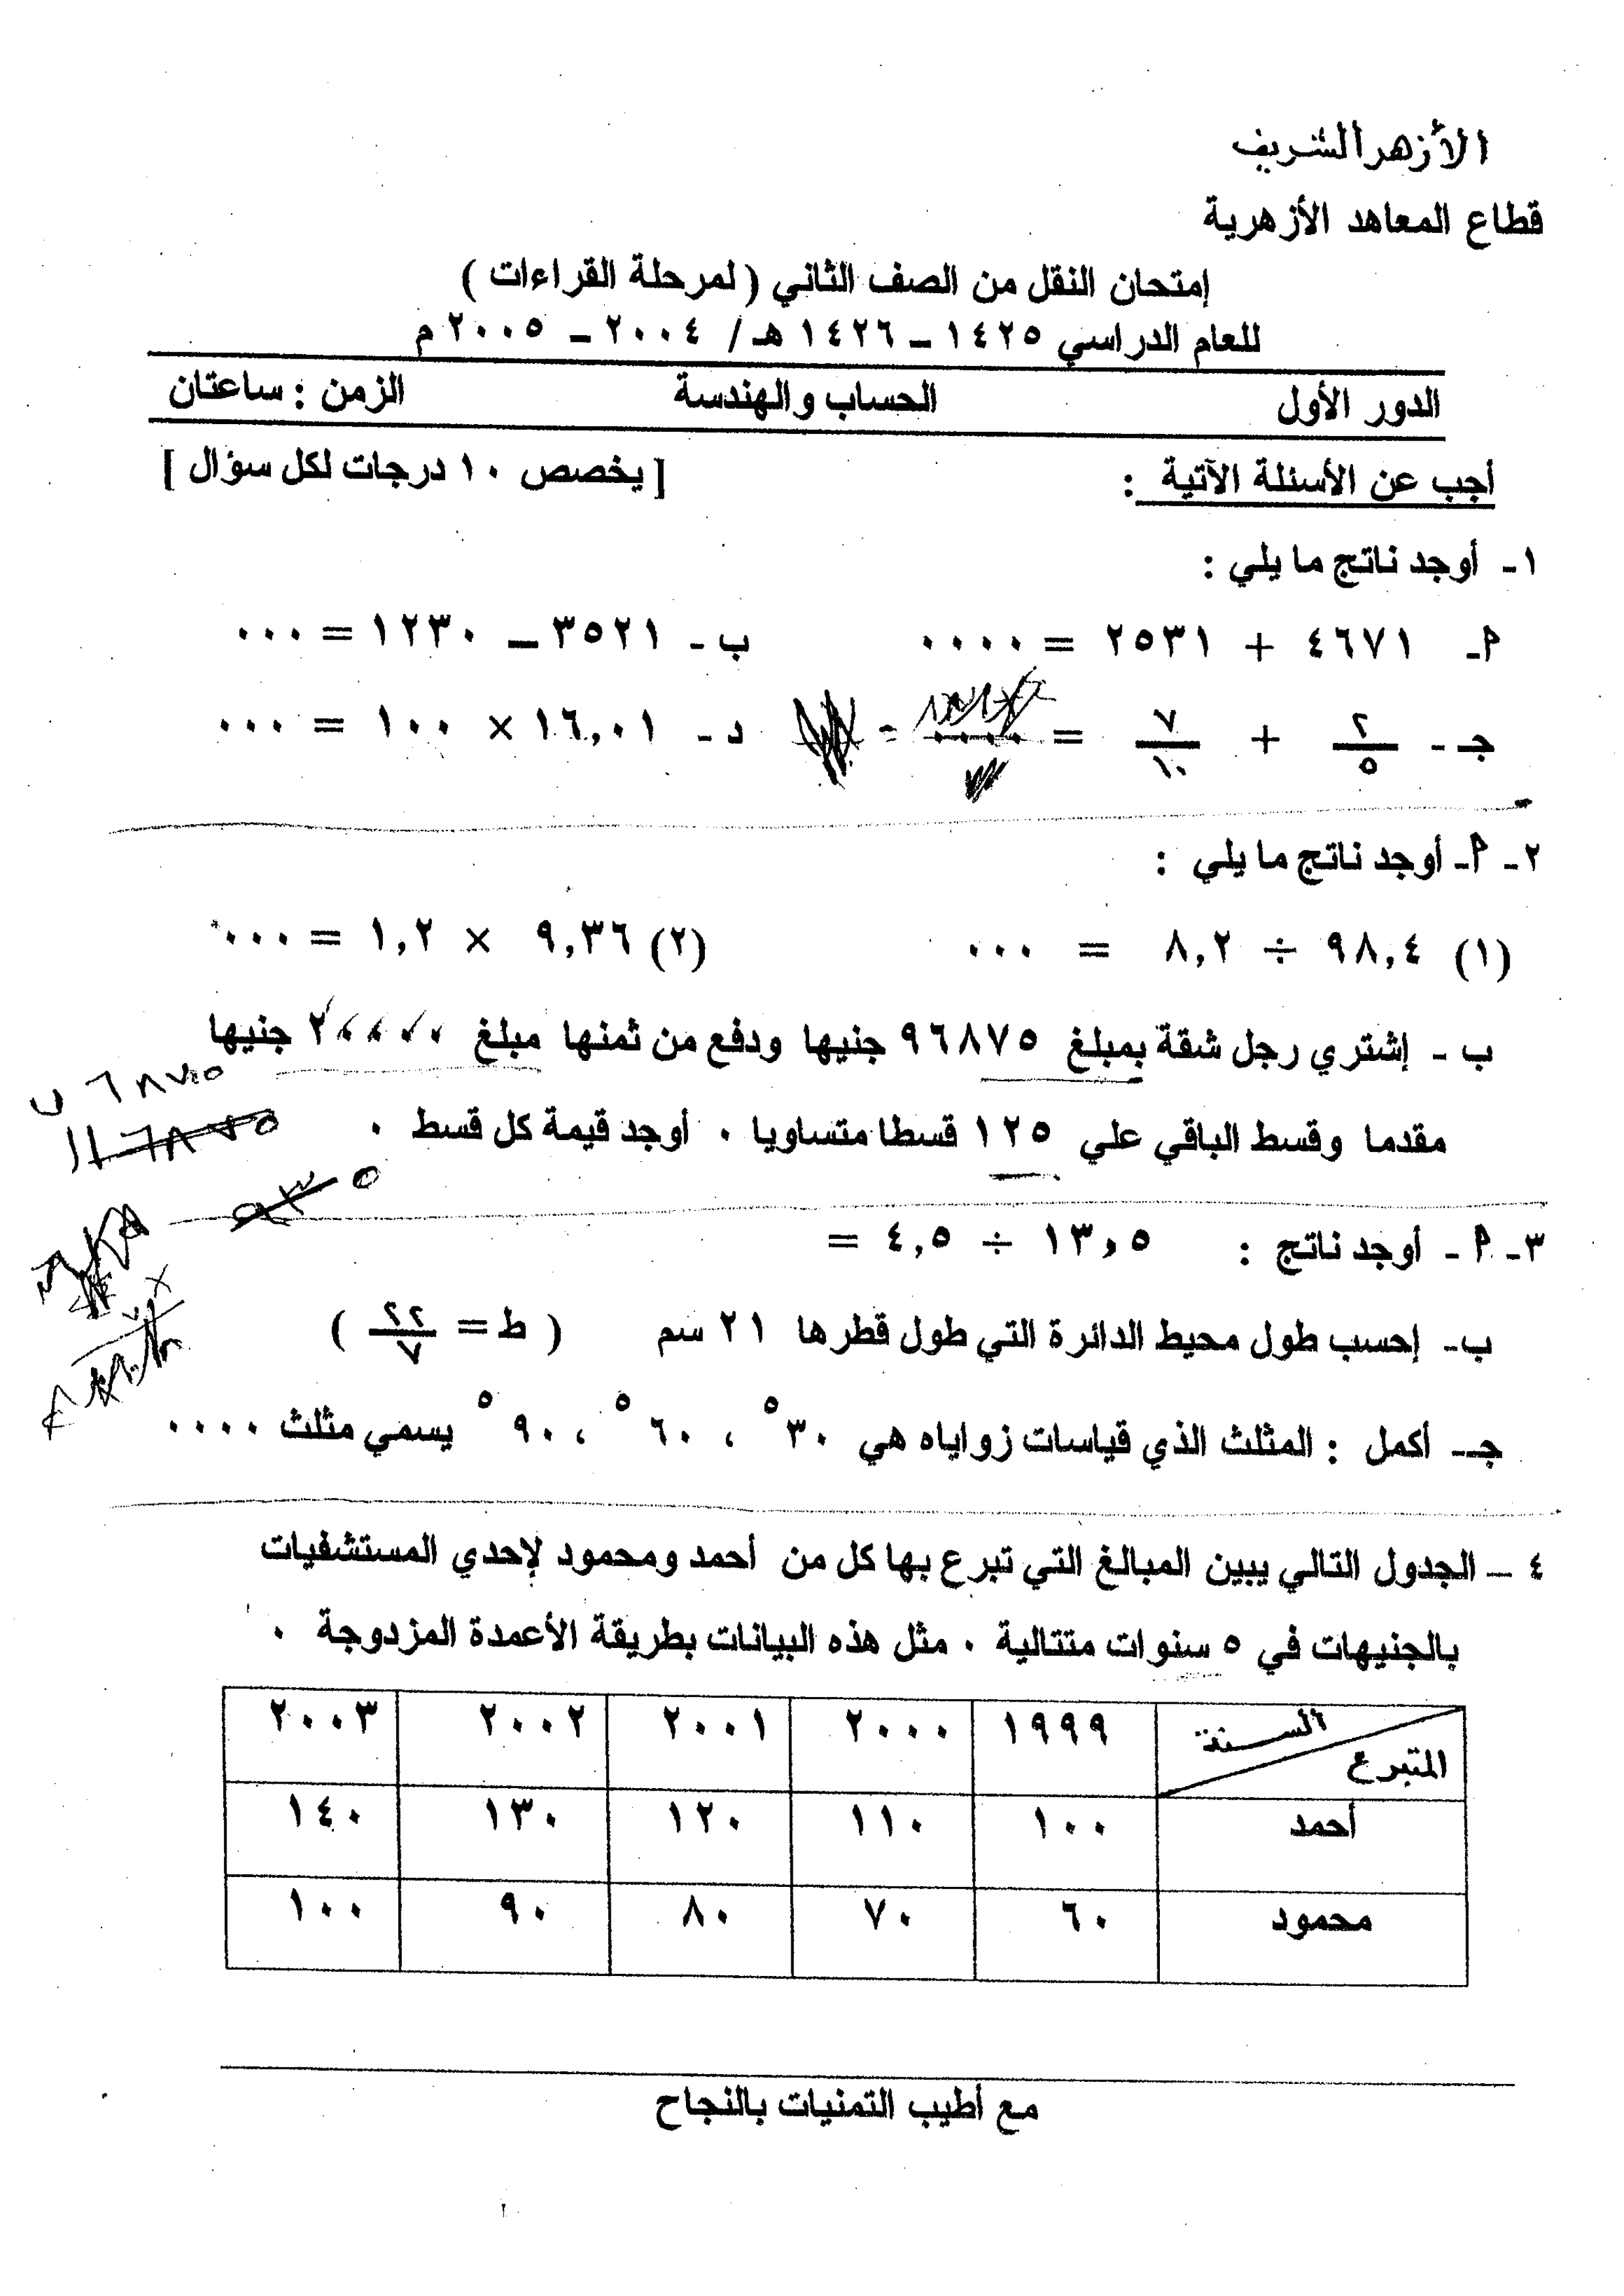 الأزهر الشريف
قطاع المعاهد الأزهرية
إمتحان النقل من الصف الثاني ( لمرحلة القراءات )
للعام الدراسي ١٤٢٥ – ١٤٢٦ هـ / ٢٠٠٤ – ٢٠٠٥ م
الدور الأول الحساب والهندسة الزمن : ساعتان
أجب عن الأسئلة الآتية : [ يخصص ١٠ درجات لكل سؤال ]
١- أوجد ناتج ما يلي :
أ- ٤٦٧١ + ٢٥٣١ = ٠٠٠٠ ب - ٣٥٢١ – ١٢٣٠ = ٠٠٠
جـ - ٢/٥ + ٧/١٠ = ٠٠٠٠ د - ١٦,٠١ × ١٠٠ = ٠٠٠
٢- أ- أوجد ناتج ما يلي :
(١) ٩٨,٤ ÷ ٨,٢ = ٠٠٠ (٢) ٩,٣٦ × ١,٢ = ٠٠٠
ب - إشتري رجل شقة بمبلغ ٩٦٨٧٥ جنيها ودفع من ثمنها مبلغ ٢٠٠٠٠ جنيها
مقدما وقسط الباقي علي ١٢٥ قسطا متساويا ٠ أوجد قيمة كل قسط ٠
٣- أ - أوجد ناتج : ١٣,٥ ÷ ٤,٥ =
ب- إحسب طول محيط الدائرة التي طول قطرها ٢١ سم ( ط = ٢٢/٧ )
جـ- أكمل : المثلث الذي قياسات زواياه هي ٣٠° ، ٦٠° ، ٩٠° يسمي مثلث ٠٠٠٠
٤ – الجدول التالي يبين المبالغ التي تبرع بها كل من أحمد ومحمود لإحدي المستشفيات
بالجنيهات في ٥ سنوات متتالية ٠ مثل هذه البيانات بطريقة الأعمدة المزدوجة ٠
السنة المتبرع ١٩٩٩ ٢٠٠٠ ٢٠٠١ ٢٠٠٢ ٢٠٠٣
أحمد ١٠٠ ١١٠ ١٢٠ ١٣٠ ١٤٠
محمود ٦٠ ٧٠ ٨٠ ٩٠ ١٠٠
مع أطيب التمنيات بالنجاح